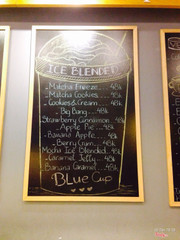 ICE BLENDED
Matcha Freeze ..... 48k
Matcha Cookies ..... 48k
Cookies & Cream ..... 48k
Big Bang ..... 48k
Strawberry Cinnamon .. 48k
Apple Pie ..... 48k
Banana Apple ..... 48k
Berry Crum ..... 48k
Mocha Ice Blended .. 48k
Caramel Jelly ..... 48k
Banana Caramel ... 48k
BLUE Cup